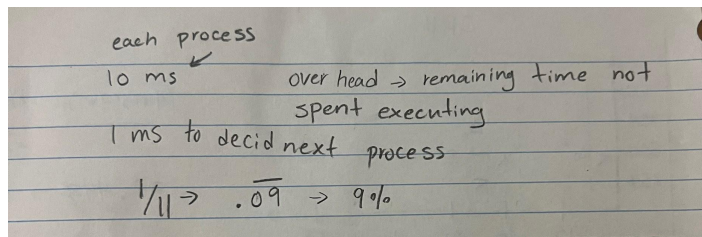 each process
10 ms over head → remaining time not
spent executing
1 ms to decid next process
1/11 → .0̅9̅ → 9%